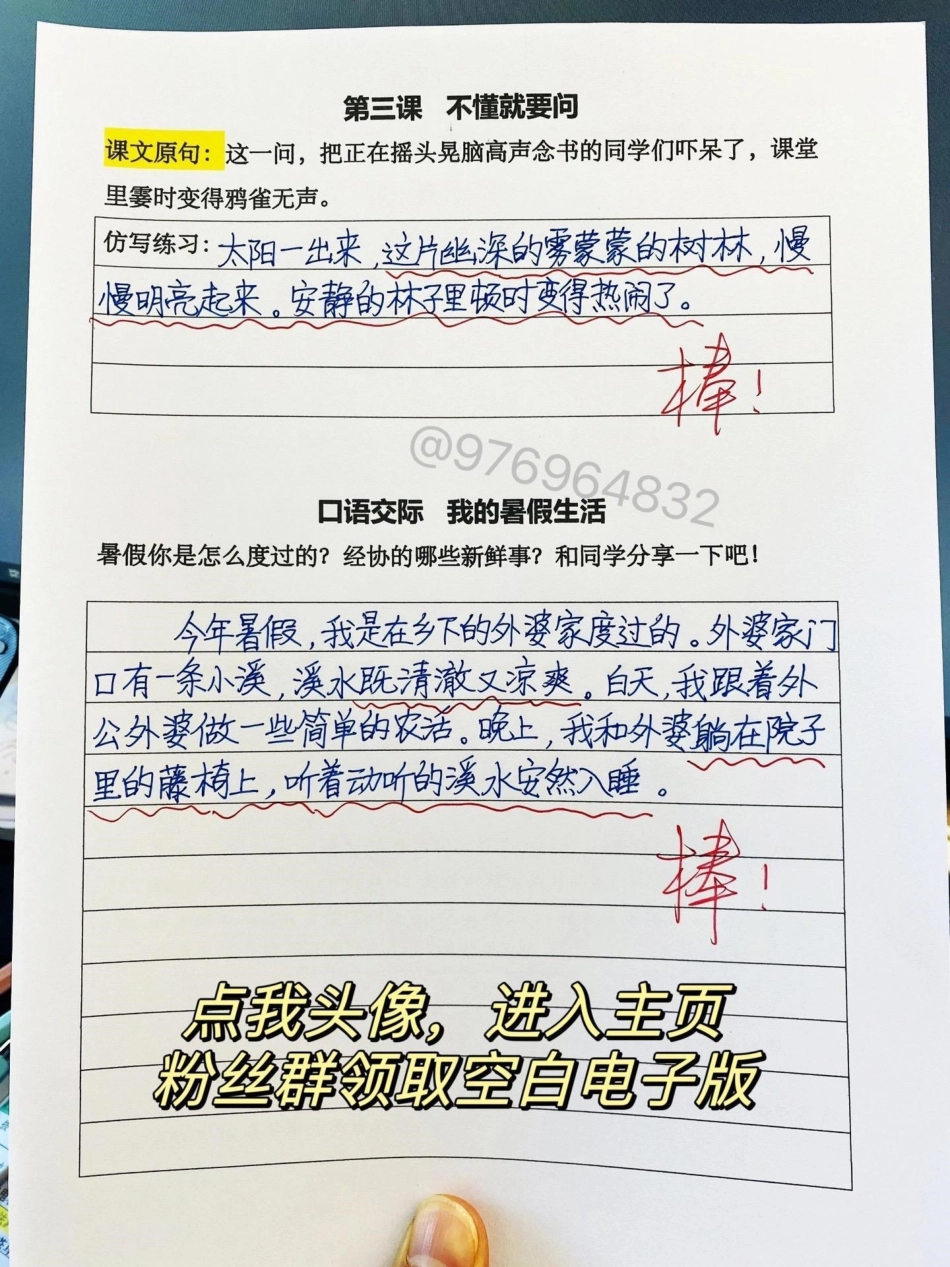 第三课 不懂就要问
课文原句：这一问，把正在摇头晃脑高声念书的同学们吓呆了，课堂
里霎时变得鸦雀无声。
仿写练习：太阳一出来，这片幽深的雾蒙蒙的树林，慢
慢明亮起来。安静的林子里顿时变得热闹了。
棒！
@976964832
口语交际 我的暑假生活
暑假你是怎么度过的？经协的哪些新鲜事？和同学分享一下吧！
今年暑假，我是在乡下的外婆家度过的。外婆家门
口有一条小溪，溪水既清澈又凉爽。白天，我跟着外
公外婆做一些简单的农活。晚上，我和外婆躺在院子
里的藤椅上，听着动听的溪水安然入睡。
棒！
点我头像，进入主页
粉丝群领取空白电子版